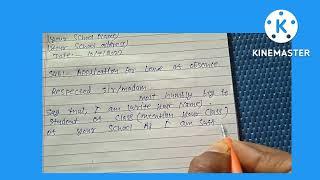 (your School Name)
(your School address)
Date:-
Sub:- Application for Leave of absence
Respected sir/madam
most humbly beg to
Say that, I am (write your name),
Student of class (mention your class)
of your School As I am
KINEMASTER